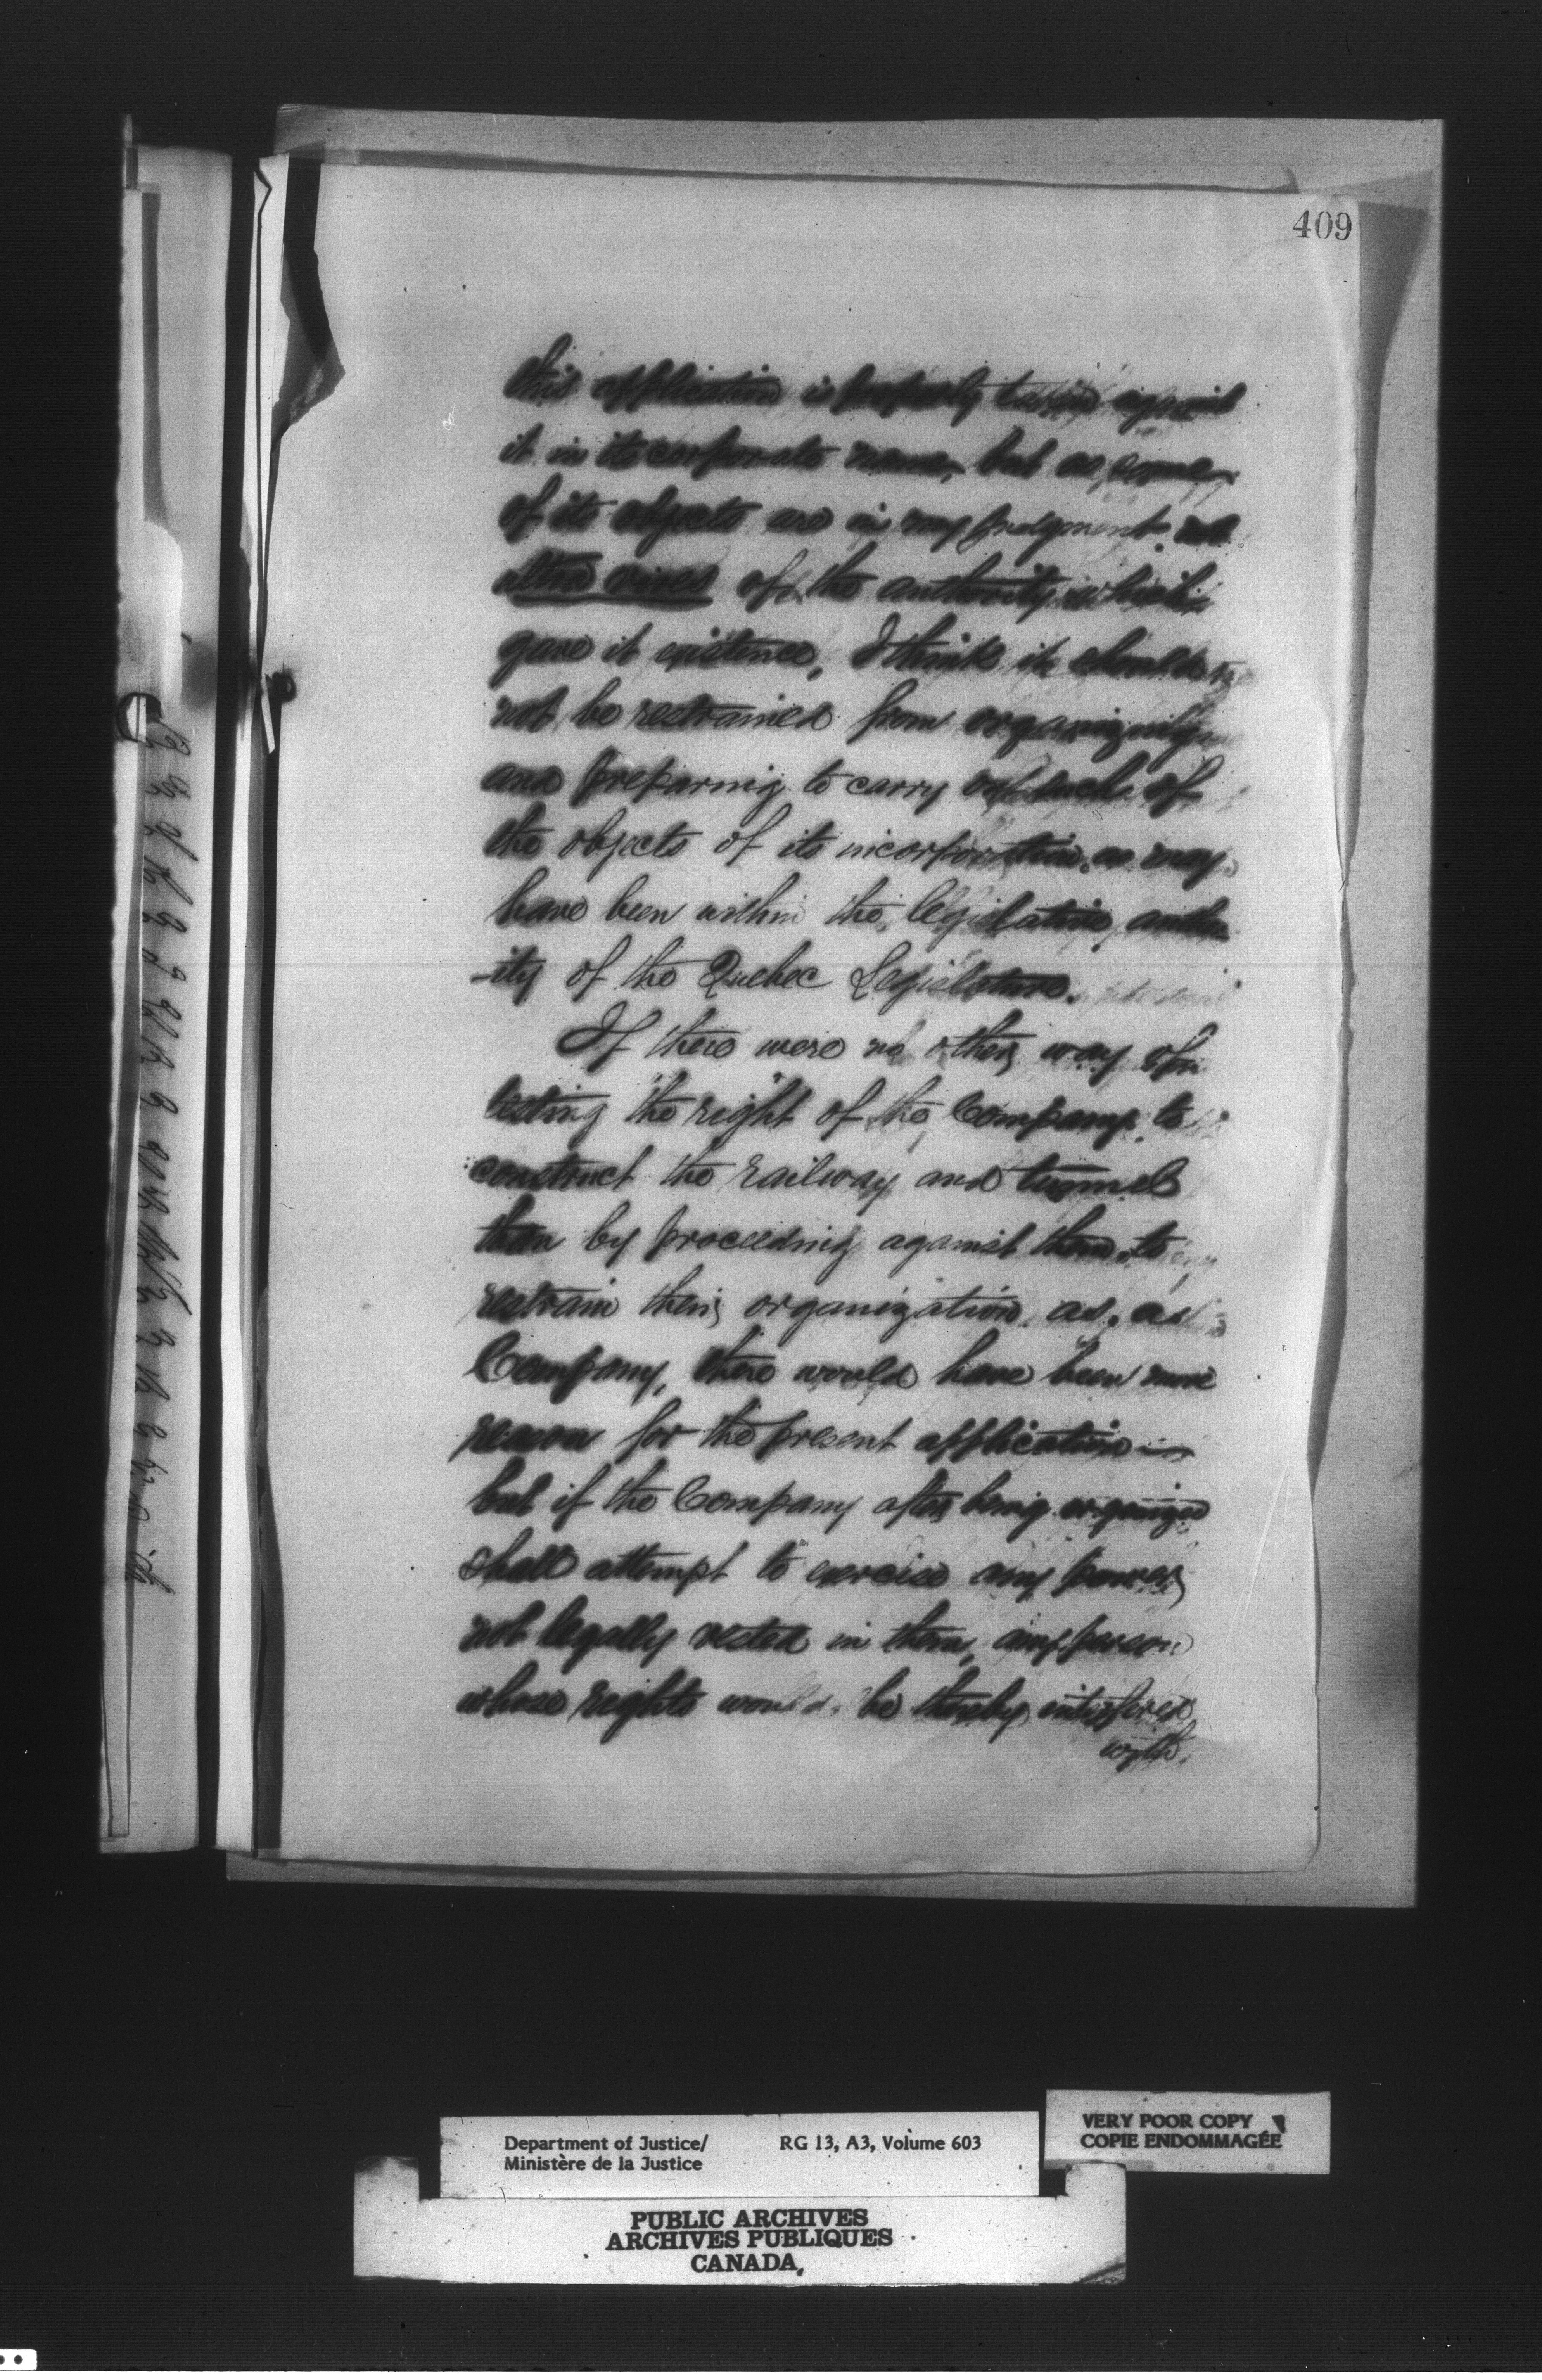 409
this application is properly taken against
it in its corporate name, but as some
of its objects are in my judgment not
ultra vires of the authority which
gave it existence, I think it should
not be restrained from organizing
and preparing to carry out such of
the objects of its incorporation as may
have been within the legislative author
-ity of the Quebec Legislature.
If there were no other way of
testing the right of the Company to
construct the railway and tunnel
than by proceeding against them to
restrain their organization as a
Company, there would have been more
reason for the present application
but if the Company after being organized
shall attempt to exercise any powers
not legally vested in them, any person
whose rights would be thereby interfered
with.
Department of Justice/
Ministère de la Justice
RG 13, A3, Volume 603
VERY POOR COPY
COPIE ENDOMMAGÉE
PUBLIC ARCHIVES
ARCHIVES PUBLIQUES
CANADA